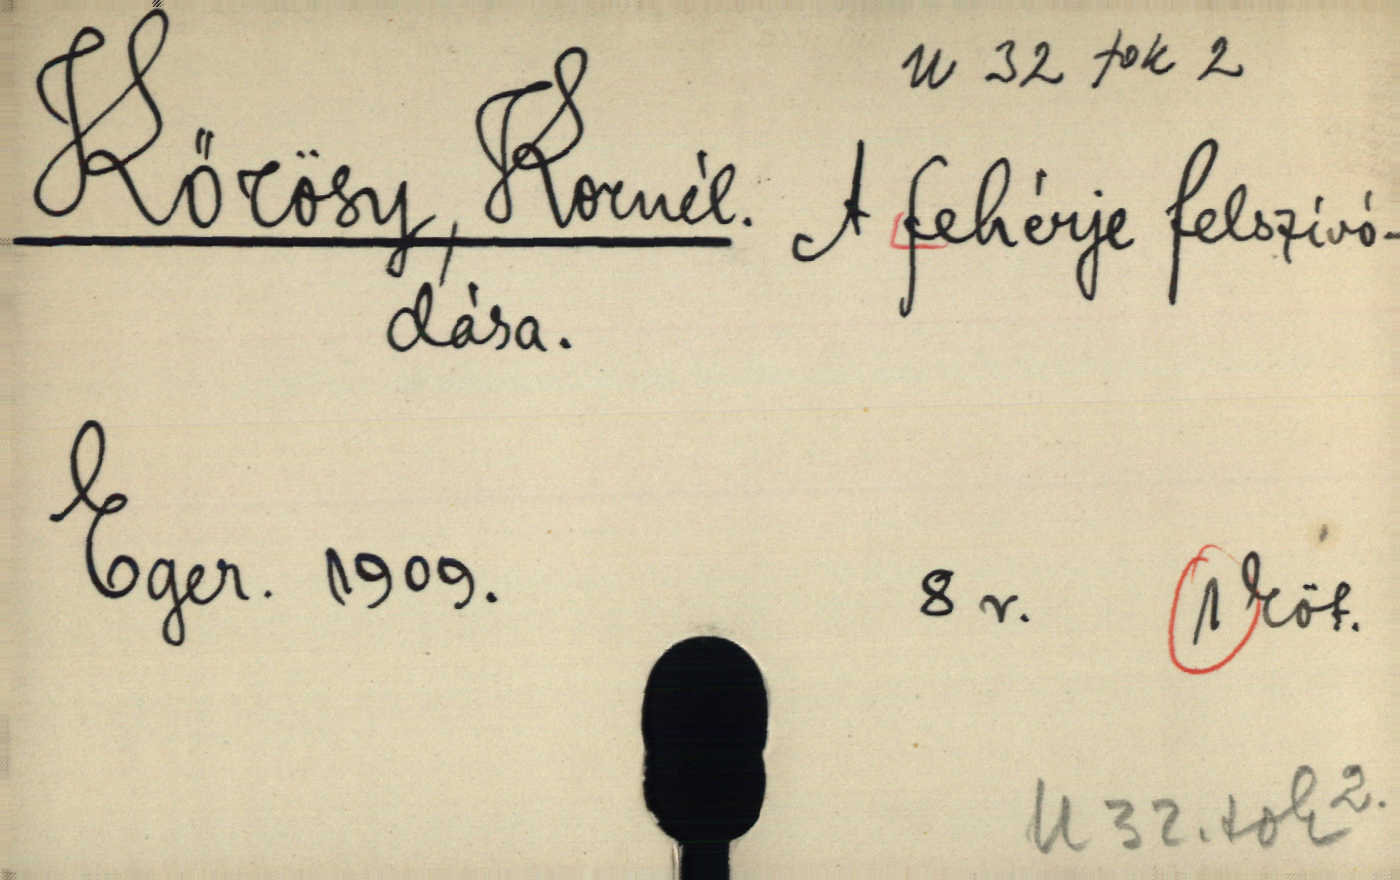 U 32 tok 2
Kőrösy, Kornél. A fehérje felszívó-
dása.
Eger. 1909.
8 r. 1 köt.
U 32. tok 2.